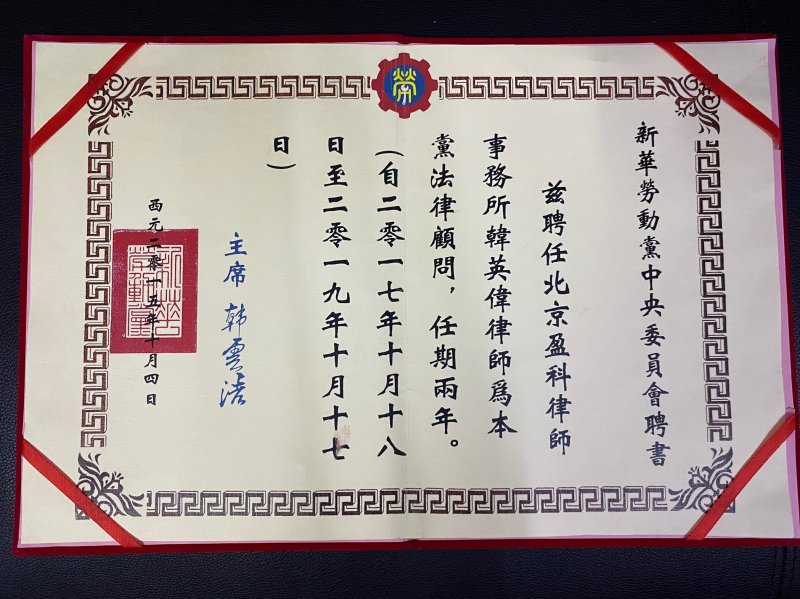 勞
新華勞動黨中央委員會聘書
兹聘任北京盈科律師
事務所韓英偉律師爲本
黨法律顧問，任期兩年。
(自二零一七年十月十八
日至二零一九年十月十七
日)
主席 韩雲浩
西元二零十五年十月四日
新華
勞動黨